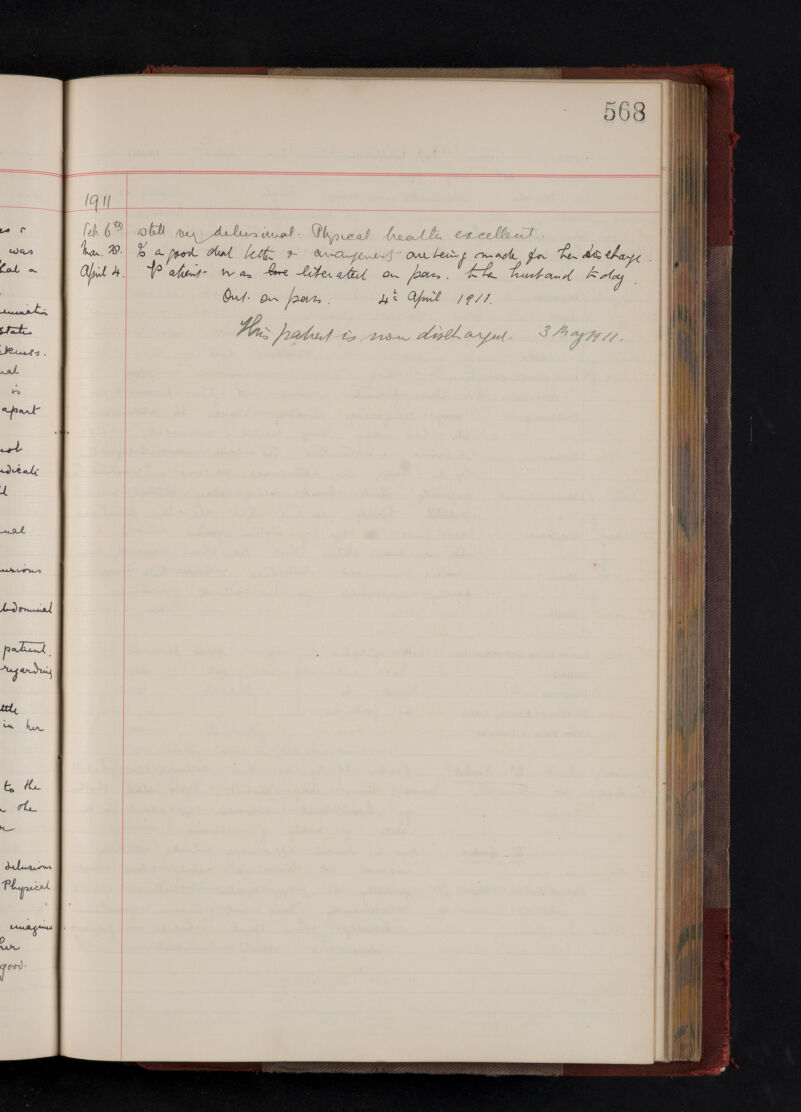 568
1911
Feb 6th still very delusional. Physical health excellent.
Mar. 28. Is a good deal better & arrangements are being made for her discharge.
April 4. Patient was liberated on pass. to her husband to day.
Out. on pass. 4th April 1911.
This patient is now discharged. 3 May 1911.
was
that a
states
is
apart
not
abdominal
patient.
regarding
in her
to the
the
delusions
Physical
imagines
her
good.